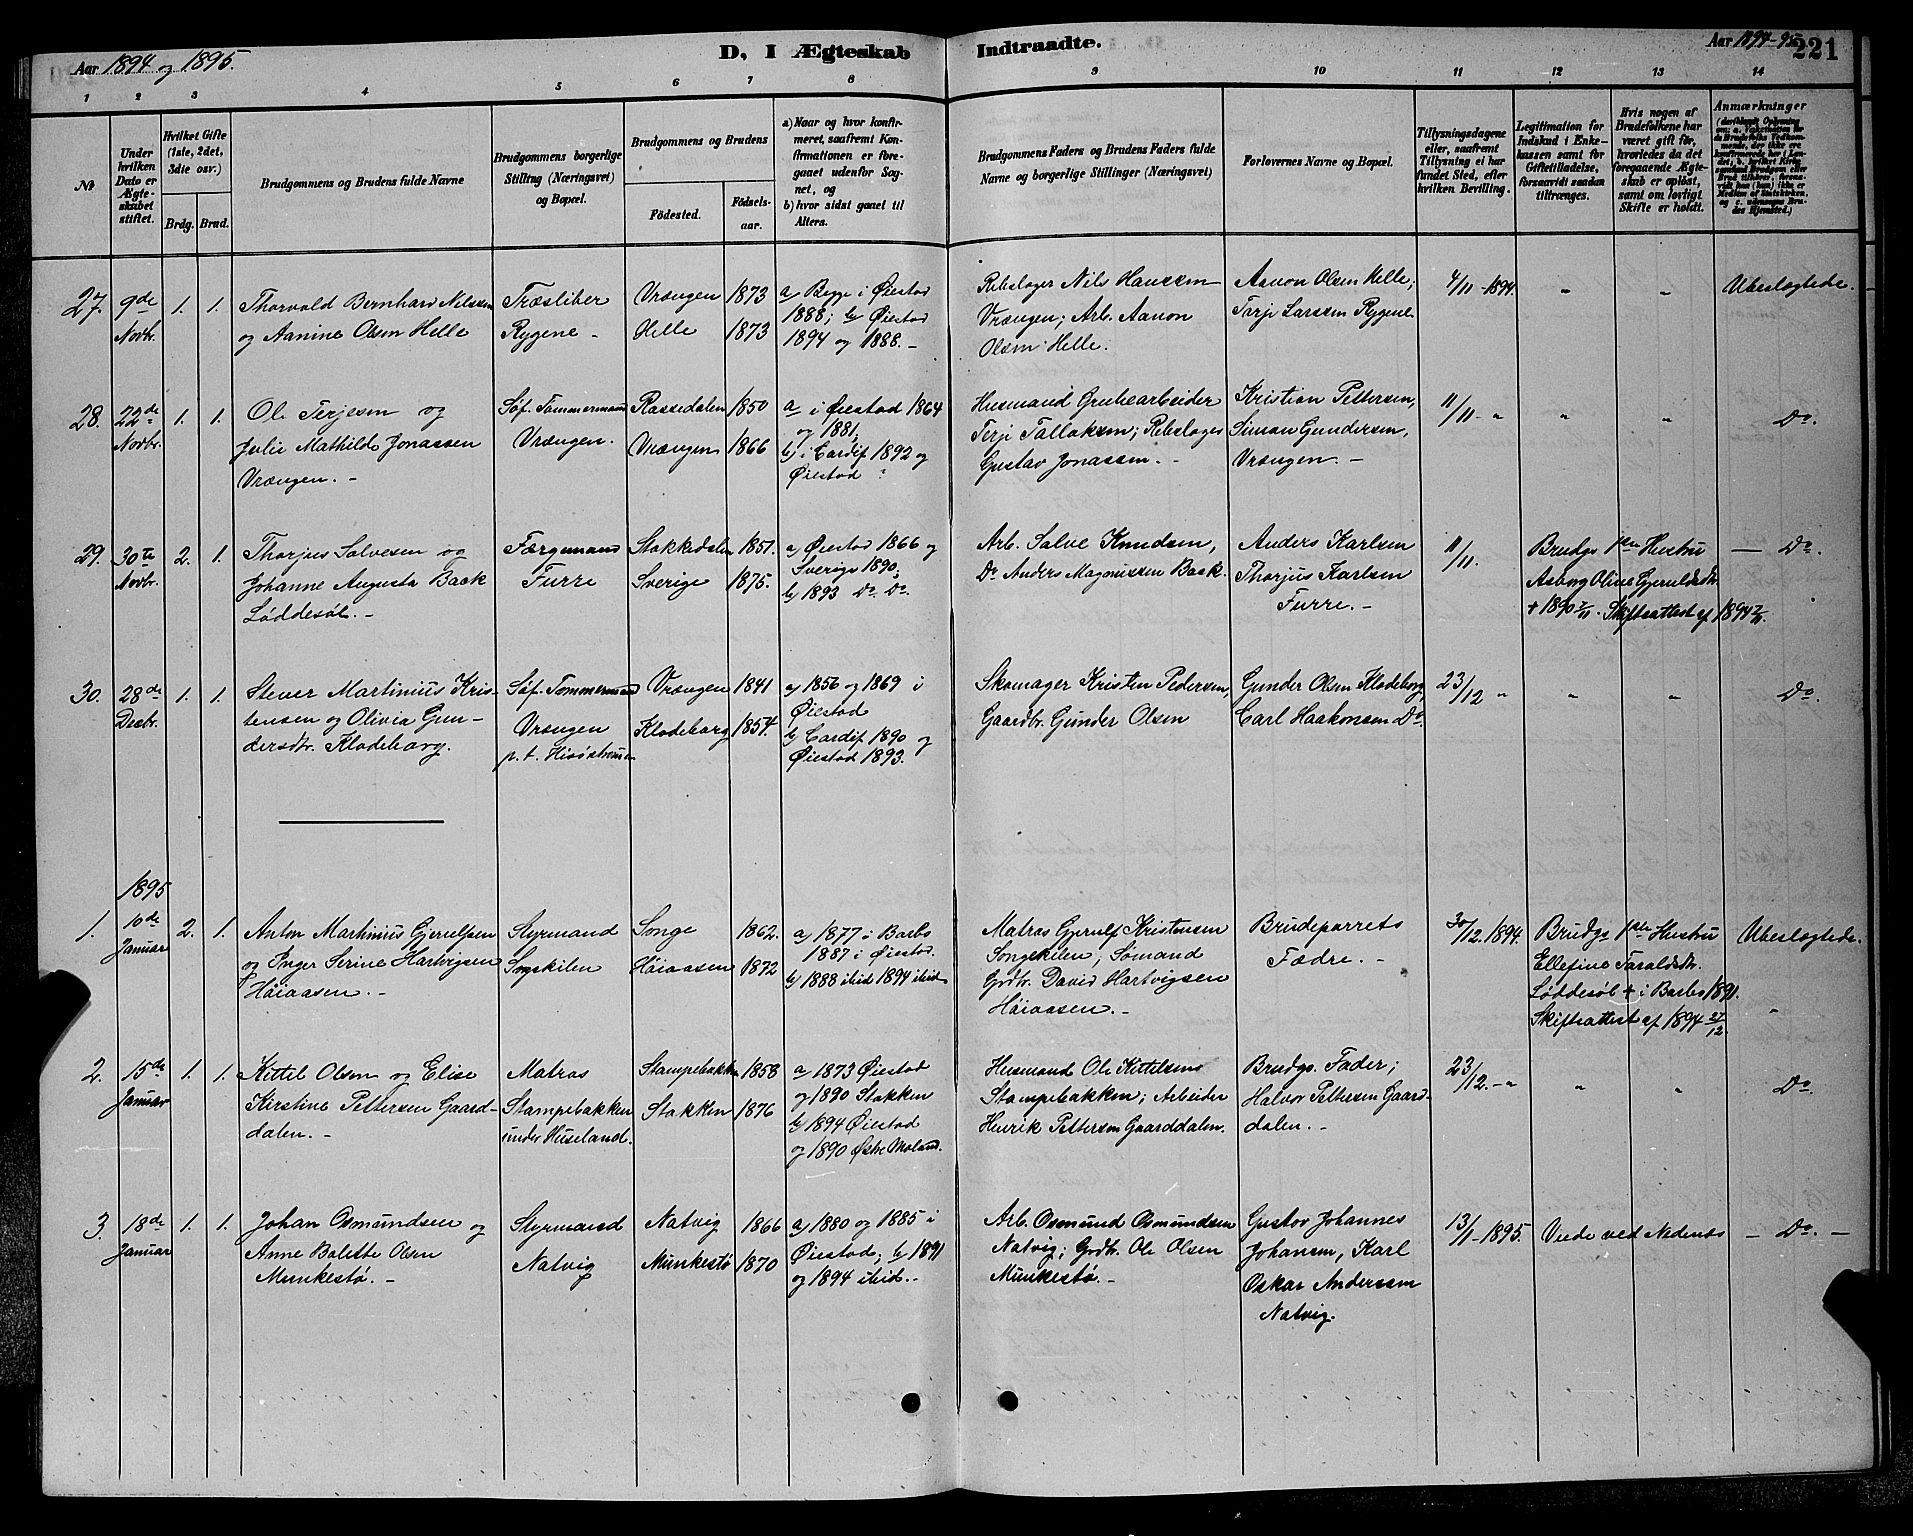 Aar 1894 og 1895.
D, I Ægteskab Indtraadte.
Aar 1894-95.
221
1 2 3 4 5 6 7 8 9 10 11 12 13 14
№
Under hvilken Dato er Ægteskabet stiftet.
Hvilket Gifte (1ste, 2det, 3die osv.)
Brdg. Brud.
Brudgommens og Brudens fulde Navne
Brudgommens borgerlige Stilling (Næringsvei) og Bopæl.
Brudgommens og Brudens
Födested.
Födselsaar.
a) Naar og hvor konfirmeret, saafremt Konfirmationen er foregaaet udenfor Sognet, og
b) hvor sidst gaaet til Alters.
Brudgommens Faders og Brudens Faders fulde Navne og borgerlige Stillinger (Næringsvei)
Forlovernes Navne og Bopæl.
Tillysningsdagene eller, saafremt Tillysning ei har fundet Sted, efter hvilken Bevilling.
Legitimation for Indskud i Enkekassen samt for Giftetilladelse, forsaavidt saadan tiltrænges.
Hvis nogen af Brudefolkene har været gift før, hvorledes da det foregaaende Ægteskab er opløst, samt om lovligt Skifte er holdt.
Anmærkninger
27. 9de Novbr. 1. 1.
Thorvald Bernhard Nilssen
og Aanine Olsen Helle
Træsliber
Rygene -
Vrængen 1873
Helle 1873
a/ Begge i Øiestad
1888; b/ Øiestad
1894 og 1888. -
Rebslager Nils Hanssen
Vrængen; Arb. Aanon
Olsen Helle.
Aanon Olsen Helle;
Terje Larssen Rygene
4/11 - 1894.
" "
Ubeslægtede.
28. 22de Novbr. 1. 1.
Ole Terjesen og
Julie Mathilde Jonassen
Vrængen. -
Søf. Tømmermand
Vrængen.
Rassedalen 1850
Vrængen 1866
a/ i Øiestad 1864
og 1881;
b/ i Cardif 1892 og
Øiestad ?
Husmand Grubearbeider
Terje Tallaksen; Rebslager
Gustav Jonassen. -
Kristian Pettersen,
Simon Gundersen,
Vrængen. -
11/11 - "
" "
Do.
29. 30te Novbr. 2. 1.
Thorjus Salvesen og
Johanne Augusta Baak
Løddesøl. -
Færgemand
Furre
Stokkedalen 1851.
Sverige 1875.
a/ Øiestad 1866 og
Sverige 1890;
b/ 1893 Do. Do.
Arb. Salve Knudsen,
Do. Anders Magnussen Baak.
Anders Karlsen
Thorjus Karlsen
Furre. -
11/11.
Brudgs 1ste Hustru
Asborg Oline Gjeruldsdtr.
+ 1890 2/11. Skifteattest af 1894 2/11.
— Do.
30. 28de Decbr. 1. 1.
Stener Martinius Kris-
tensen og Olivia Gun-
dersdtr. Klodeborg.
Søf. Tømmermand
Vrængen
p. t. Hisøstrømmen
Vrængen 1841
Klodeborg 1854.
a/ 1856 og 1869 i
Øiestad
b/ Cardif 1890 og
Øiestad 1893.
Skomager Kristen Pedersen,
Gaardbr. Gunder Olsen
Gunder Olsen Klodeborg
Carl Haakonsen Do
23/12 "
" "
Do.
1895
1. 10de Januar 2. 1.
Anton Martinius Gjerulfsen
og Inger Serine Hartvigsen
Høiaasen. -
Styrmand
Songskilen
Songe 1862.
Høiaasen 1872
a/ 1877 i Barbo
1887 i Øiestad.
b/ 1888 ibid 1894 ibid
Matros Gjerulf Kristensen
Songekilen; Sømand
Grdbr. David Hartvigsen
Høiaasen. -
Brudeparrets
Fædre. -
30/12. 1894.
Brudgs 1ste Hustru
Ellefine Taraldsdtr.
Løddesøl + i Barbo 1891.
Skifteattest af 1894 27/12.
Ubeslægtede.
"
2. 15de Januar 1. 1.
Kittel Olsen og Elise
Kirstine Pettersen Gaard-
dalen. -
Matros
Stampebakken
under Huseland.
Stampebakken 1858
Stokken 1876
a/ 1873 Øiestad
og 1890 Stokken
b/ 1894 Øiestad
og 1890 Østre Moland.
Husmand Ole Kittelsen
Stampebakken; Arbeider
Henrik Pettersen Gaarddalen.
Brudgs. Fader;
Halvor Pettersen Gaard-
dalen. -
23/12. - "
" "
Do.
3. 18de Januar 1. 1.
Johan Osmundsen og
Anne Bolette Olsen
Munkestø. -
Styrmand
Natvig
Natvig 1866
Munkestø 1870
a/ 1880 og 1885 i
Øiestad; b/ 1891
og 1894 ibid. -
Arb. Osmund Osmundsen
Natvig; Grdbr. Ole Olsen
Munkestø. -
Gustav Johannes
Johansen, Karl
Oskar Anderssen
Natvig.
13/1 - 1895.
Viede ved Nedenes
— Do. —